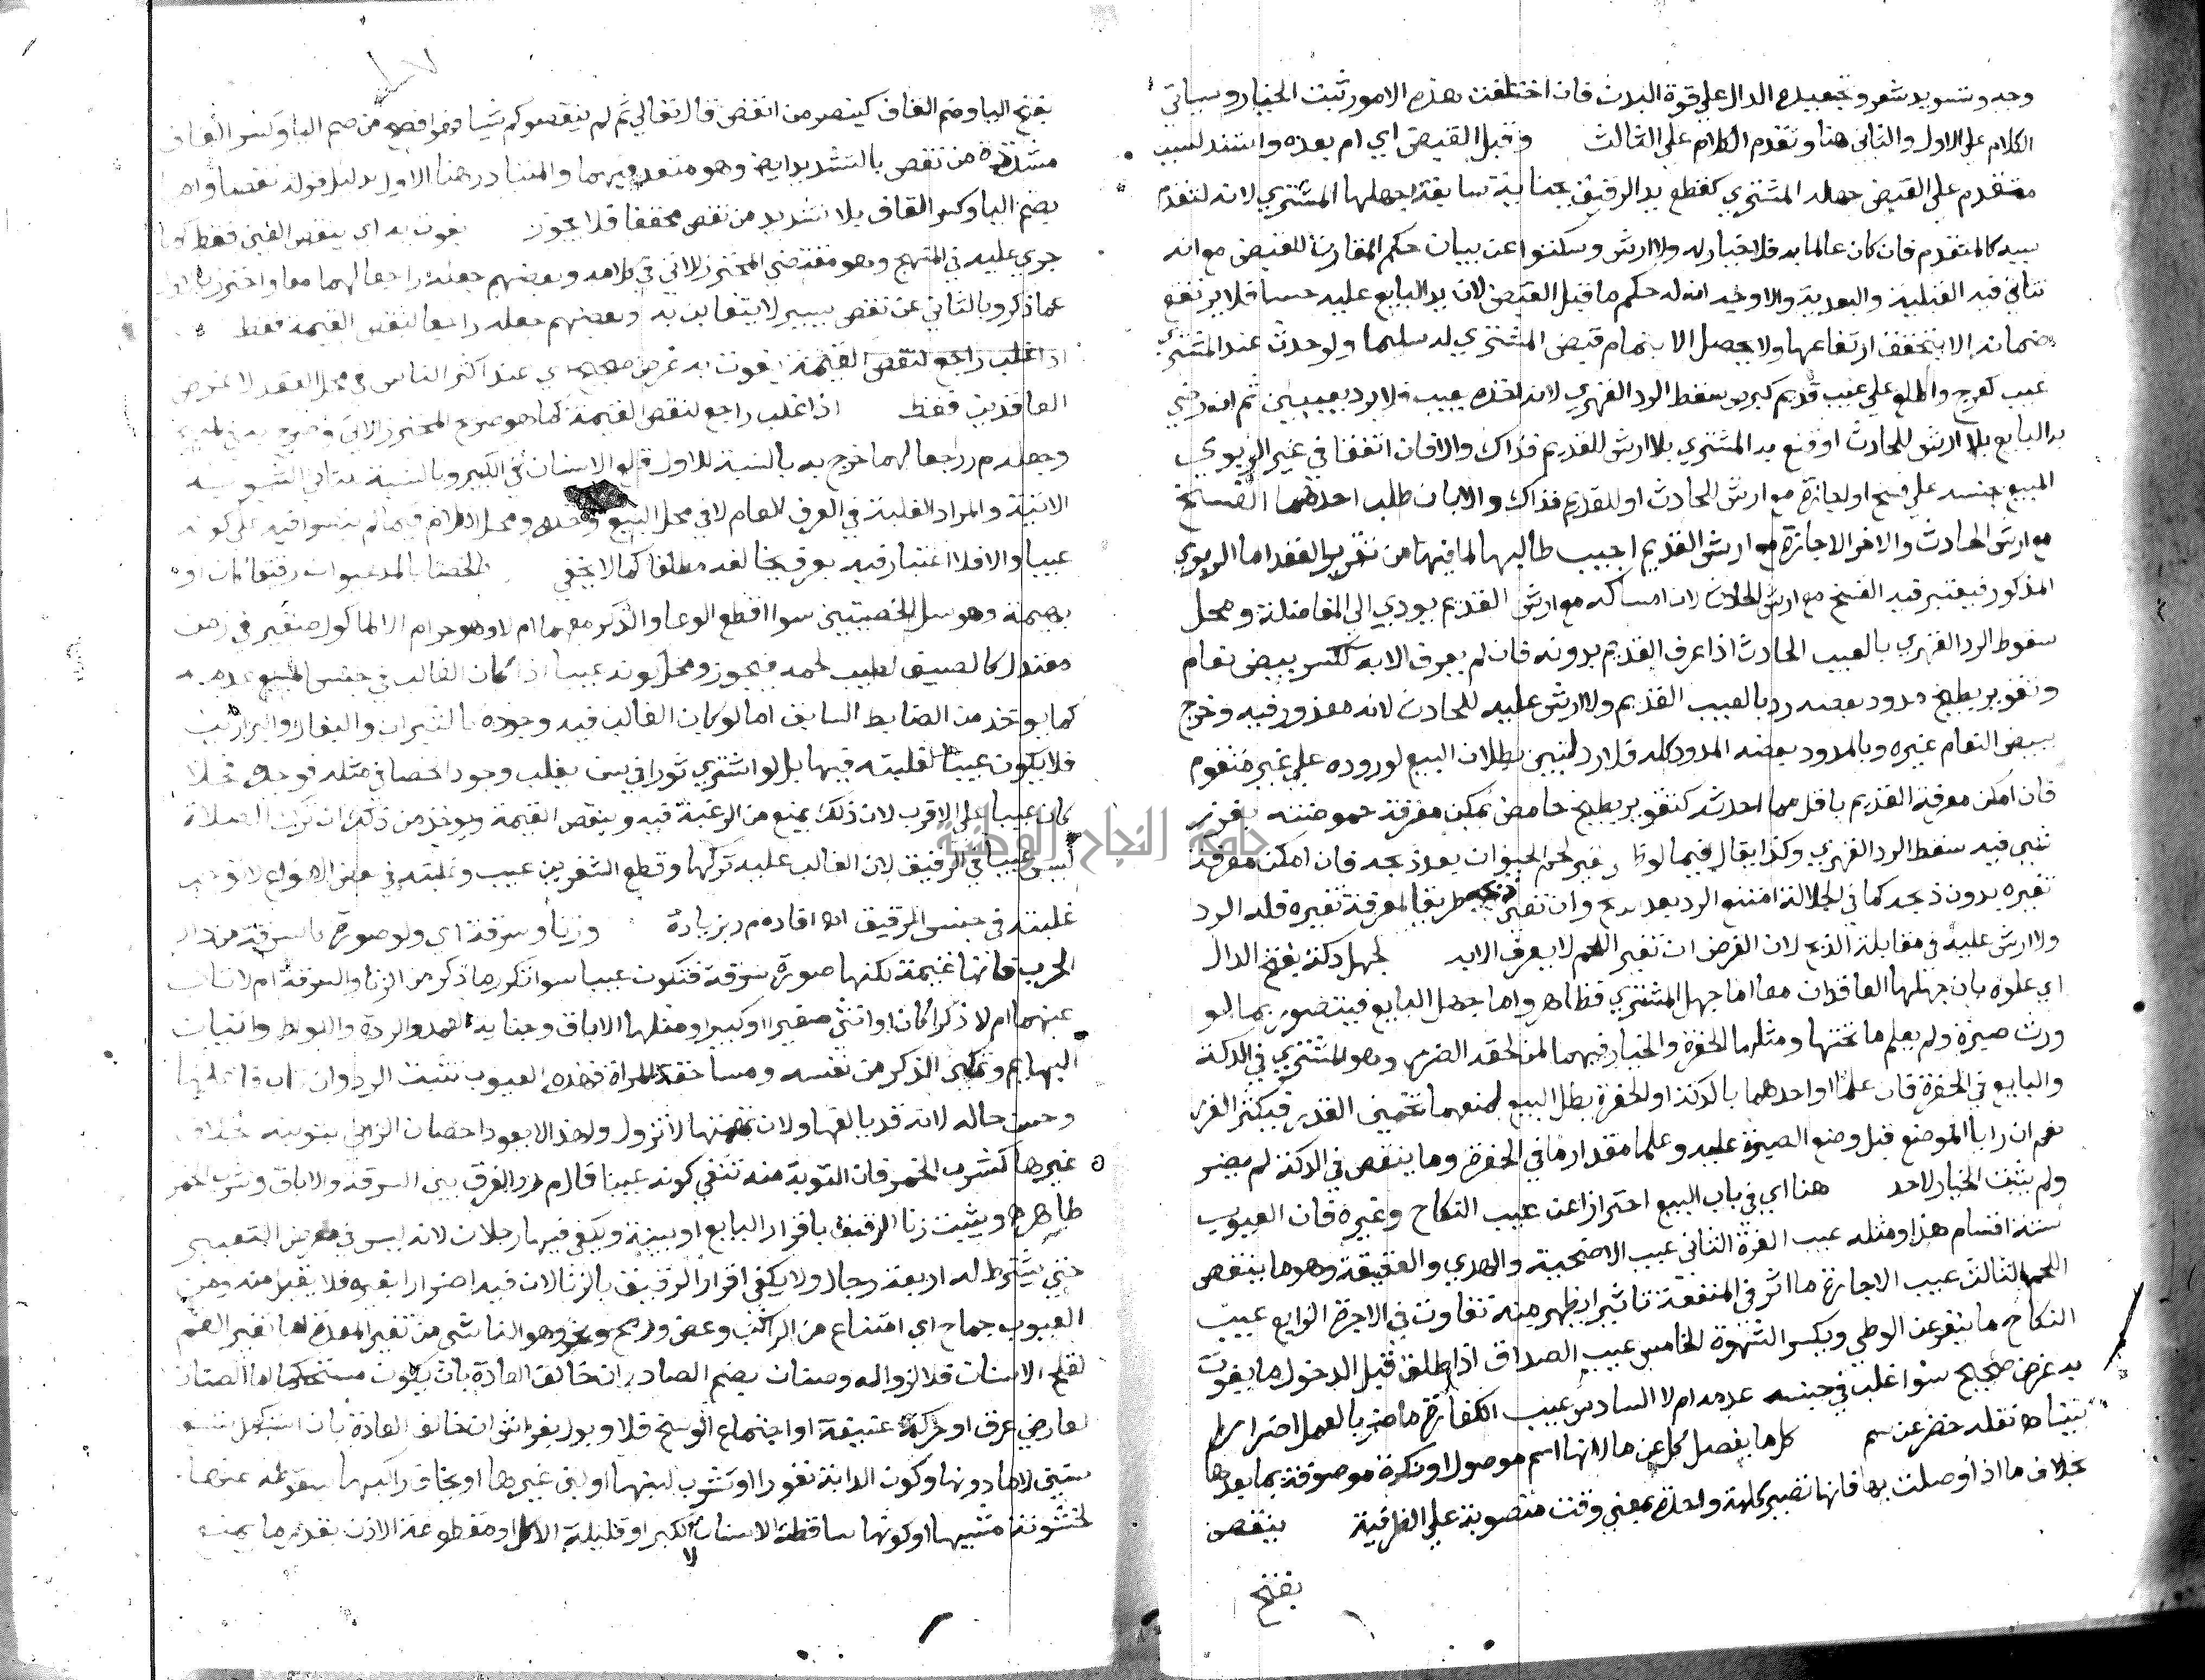 وجه وتسويد شعر وتجعيده الدال علي قوة البدن فان اختلفت هذه الامور ثبت الخيار وسياتي
الكلام علي الاول والثاني هنا وتقدم الكلام علي الثالث وقبل القبض اي ام بعده واستند لسبب
متقدم علي القبض جهله المشتري كقطع يد الرقيق بجناية سابقة يجهلها المشتري لانه لتقدم
سببه كالمتقدم فان كان عالما به فلا خيار له ولا ارش وسكتوا عن بيان حكم المقارن للقبض مع انه
تنافي فيه القبلية والبعدية والاوجه ان له حكم ما قبل القبض لان يد البايع عليه حسا فلا يرتفع
ضمانه الا بتحقق ارتفاعها ولا يحصل الا بتمام قبض المشتري له سليما ولو حدث عند المشتري
عيب كعرج واطلع علي عيب قديم كبرص سقط الرد القهري لانه اخذه بعيب فلا يرد بعيبين ثم ان رضي
به البايع بلا ارش للحادث او قنع به المشتري بلا ارش للقديم فذاك والا فان اتفقا في غير الربوي
المبيع بجنسه علي فسخ او اجازة مع ارش الحادث او للقديم فذاك والا بان طلب احدهما الفسخ
مع ارش الحادث والاخر الاجازة مع ارش القديم اجيب طالبها لما فيها من تقرير العقد اما الربوي
المذكور فيعتبر فيه الفسخ مع ارش الحادث لان امساكه مع ارش القديم يودي الي المفاضلة ومحل
سقوط الرد القهري بالعيب الحادث اذا عرف القديم بدونه فان لم يعرف الا به ككسر بيض نعام
وتقوير بطيخ مدود بعضه رد بالعيب القديم ولا ارش عليه للحادث لانه معذور فيه وخرج
ببيض النعام غيره وبالمدود بعضه المدود كله فلا رد لتبين بطلان البيع لوروده علي غير متقوم
فان امكن معرفة القديم باقل مما احدثه كتقوير بطيخ حامض يمكن معرفة حموضته بغرز
شي فيه سقط الرد القهري وكذا يقال فيما لو تغير لحم الحيوان بعد ذبحه فان امكن معرفة
تغيره بدون ذبحه كما في الجلالة امتنع الرد بعد ذبحه وان تعين ذبحه طريقا لمعرفة تغيره فله الرد
ولا ارش عليه في مقابلة الذبح لان الفرض ان تغير اللحم لا يعرف الا به لجهل دكة بفتح الدال
اي علوه بان جهلها العاقدان معا اما جهل المشتري فظاهر واما جهل البايع فيتصور بما لو
ورث صبرة ولم يعلم ما تحتها ومثلها الحفرة والخيار فيهما لمن لحقه الضرر وهو المشتري في الدكة
والبايع في الحفرة فان علما او احدهما بالدكة او الحفرة بطل البيع لمنعهما تخمين القدر فيكثر الغرر
نعم ان رايا الموضع قبل وضع الصبرة عليه وعلما مقدار ما في الحفرة وما ينقص في الدكة لم يضر
ولم يثبت الخيار لاحد هنا اي في باب البيع احترازا عن عيب النكاح وغيره فان العيوب
ستة اقسام هذا ومثله عيب الغرة الثاني عيب الاضحية والهدي والعقيقة وهو ما ينقص
اللحم الثالث عيب الاجارة ما اثر في المنفعة تاثيرا يظهر منه تفاوت في الاجرة الرابع عيب
النكاح ما ينفر عن الوطي ويكسر الشهوة الخامس عيب الصداق اذا طلق قبل الدخول ما يفوت
به غرض صحيح سوا غلب في جنسه عدمه ام لا السادس عيب الكفارة ما ضر بالعمل اضرارا
بينا ه نقله خضر عن سم كل ما يفصل كل عن ما لانها اسم موصول او نكرة موصوفة بما بعدها
بخلاف ما اذا وصلت بها فانها تصير كلمة واحدة بمعني وقت منصوبة علي الظرفية ينقص
بفتح
بفتح اليا وضم القاف كينصر من انقص قال تعالي ثم لم ينقصوكم شيا وهو افصح من ضم اليا وكسر القاف
مشددة من نقص بالتشديد ايض وهو متعد فيهما والمتبادر هنا الاول بدليل قوله نقصا واما
بضم اليا وكسر القاف بلا تشديد من نقص مخففا فلا يجوز يفوت به اي ينقص العين فقط كما
جري عليه في المنهج وهو مقتضي المحترز الاتي في كلامه وبعضهم جعله راجعا لهما معا واحترز بالاول
عما ذكر وبالثاني عن نقص يسير لا يتغابن به وبعضهم جعله راجعا لنقص القيمة فقط
اذا غلب راجع لنقص القيمة يفوت به غرض صحيح اي عند اكثر الناس في محل العقد لا غرض
العاقدين فقط اذا غلب راجع لنقص القيمة كما هو صريح المحترز الاتي وصرح به في المنهج
وجعله م ر راجعا لهما خرج به بالنسبة للاول قلع الاسنان في الكبير وبالنسبة للثاني الثيوبة
الاتية والمراد الغلبة في العرف العام لا في محل البيع وحده ومحل الكلام فيما لم ينصوا فيه علي كونه
عيبا والا فلا اعتبار فيه بعرف يخالفه مطلقا كما لا يخفي كالخصا بالمد عيوان رقيقا كان او
بهيمة وهو سل الخصيتين سوا اقطع الوعا والذكر معهما ام لا وهو حرام الا لماكول صغير في زمن
معتدل كالصيف لطيب لحمه فيجوز ومحل كونه عيبا اذا كان الغالب في جنس المبيع عدمه
كما يوخذ من الضابط السابق اما لو كان الغالب فيه وجوده كالثيران والبغال والبراذين
فلا يكون عيبا لغلبته فيها بل لو اشتري ثورا في سن يغلب وجود الخصا في مثله فوجده فحلا
كان عيبا علي الاقرب لان ذلك يمنع من الرغبة فيه وينقص القيمة ويوخذ من ذلك ان ترك الصلاة
ليس عيبا في الرقيق لان الغالب عليه تركها وقطع الشفرين عيب وغلبته في بعض الانواع لا توجب
غلبته في جنس الرقيق اه افاده م ر بزيادة وزنا وسرقة اي ولو صورة كالسرقة من دار
الحرب فانها غنيمة لكنها صورة سرقة فتكون عيبا سوا تكرر ما ذكر من الزنا والسرقة ام لا تاب
عنهما ام لا ذكرا كان او انثي صغيرا او كبيرا ومثلها الاباق وجناية العمد والردة واللواط واتيان
البهايم وتمكين الذكر من نفسه ومساحقة المراة فهذه العيوب تثبت الرد وان تاب فاعلها
وحسن حاله لانه قد يالفها ولان تهمتها لا تزول ولهذا لا يعود احصان الزاني بتوبته بخلاف
غيرها كشرب الخمر فان التوبة منه تنفي كونه عيبا قال م ر والفرق بين السرقة والاباق وشرب الخمر
ظاهر ه ويثبت زنا الرقيق باقرار البايع او ببينة ويكفي فيها رجلان لانه ليس في معرض التعيير
حتي يشترط له اربعة رجال ولا يكفي اقرار الرقيق بالزنا لان فيه اضرارا بغيره فلا يقبل منه ومن
العيوب جماح اي امتناع من الراكب وعض ورمح وبخر وهو الناشي من تغير المعدة اما تغير الفم
لقلح الاسنان فلا لزواله وصنان بضم الصاد ان خالف العادة بان يكون مستحكما اما الصنان
لعارض عرق او حركة عنيفة او اجتماع الوسخ فلا وبول بفراش ان خالف العادة بان استكمل سبع
سنين لا ما دونها وكون الدابة نفورا او تشرب لبنها او لبن غيرها او يخاف راكبها سقوطه عنها
لخشونة مشيها او كونها ساقطة الاسنان لا لكبر او قليلة الاكل او مقطوعة الاذن بقدر ما يمنع